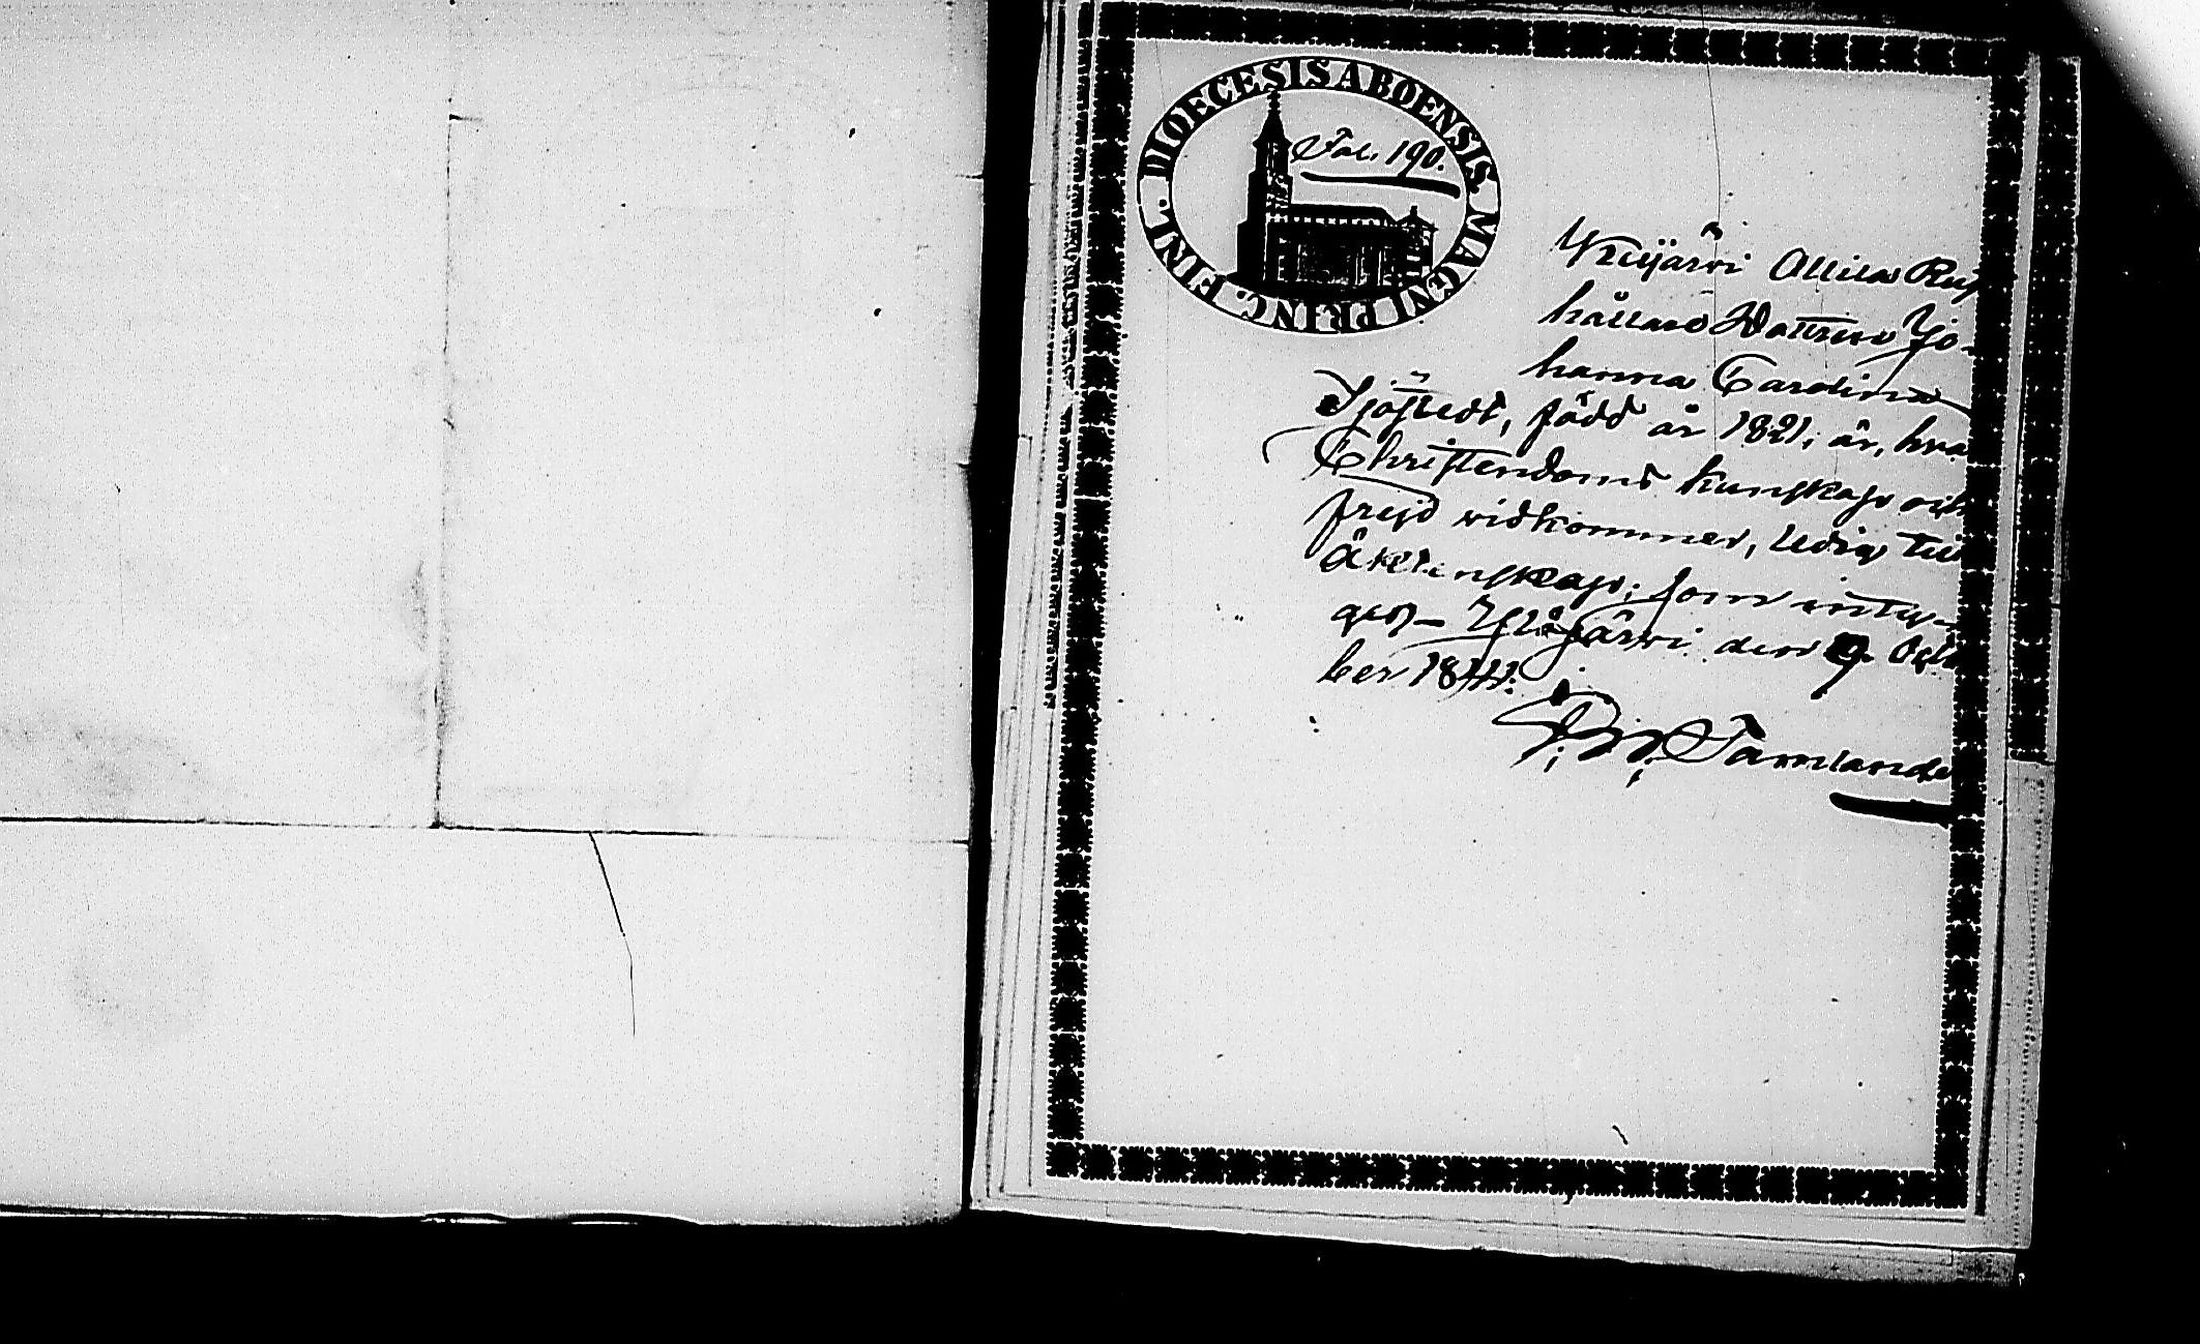 DIOECESIS ABOENSIS. MAGNI PRINC. FINL.
Fol. 190.
Attila Rus
hållare Dottren Jo-
hanna Carolina
Sjöstedt, född år 1821, är, hva
Christendoms kunskap och
frejd widkommer, ledig till
äktenskap; som intyga
ges Ylöjärwi den 9. Octo
ber 1844.